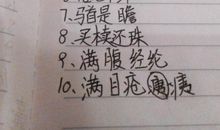 7、马首是瞻
8、买椟还珠
9、满腹经纶
10、满目疮痍